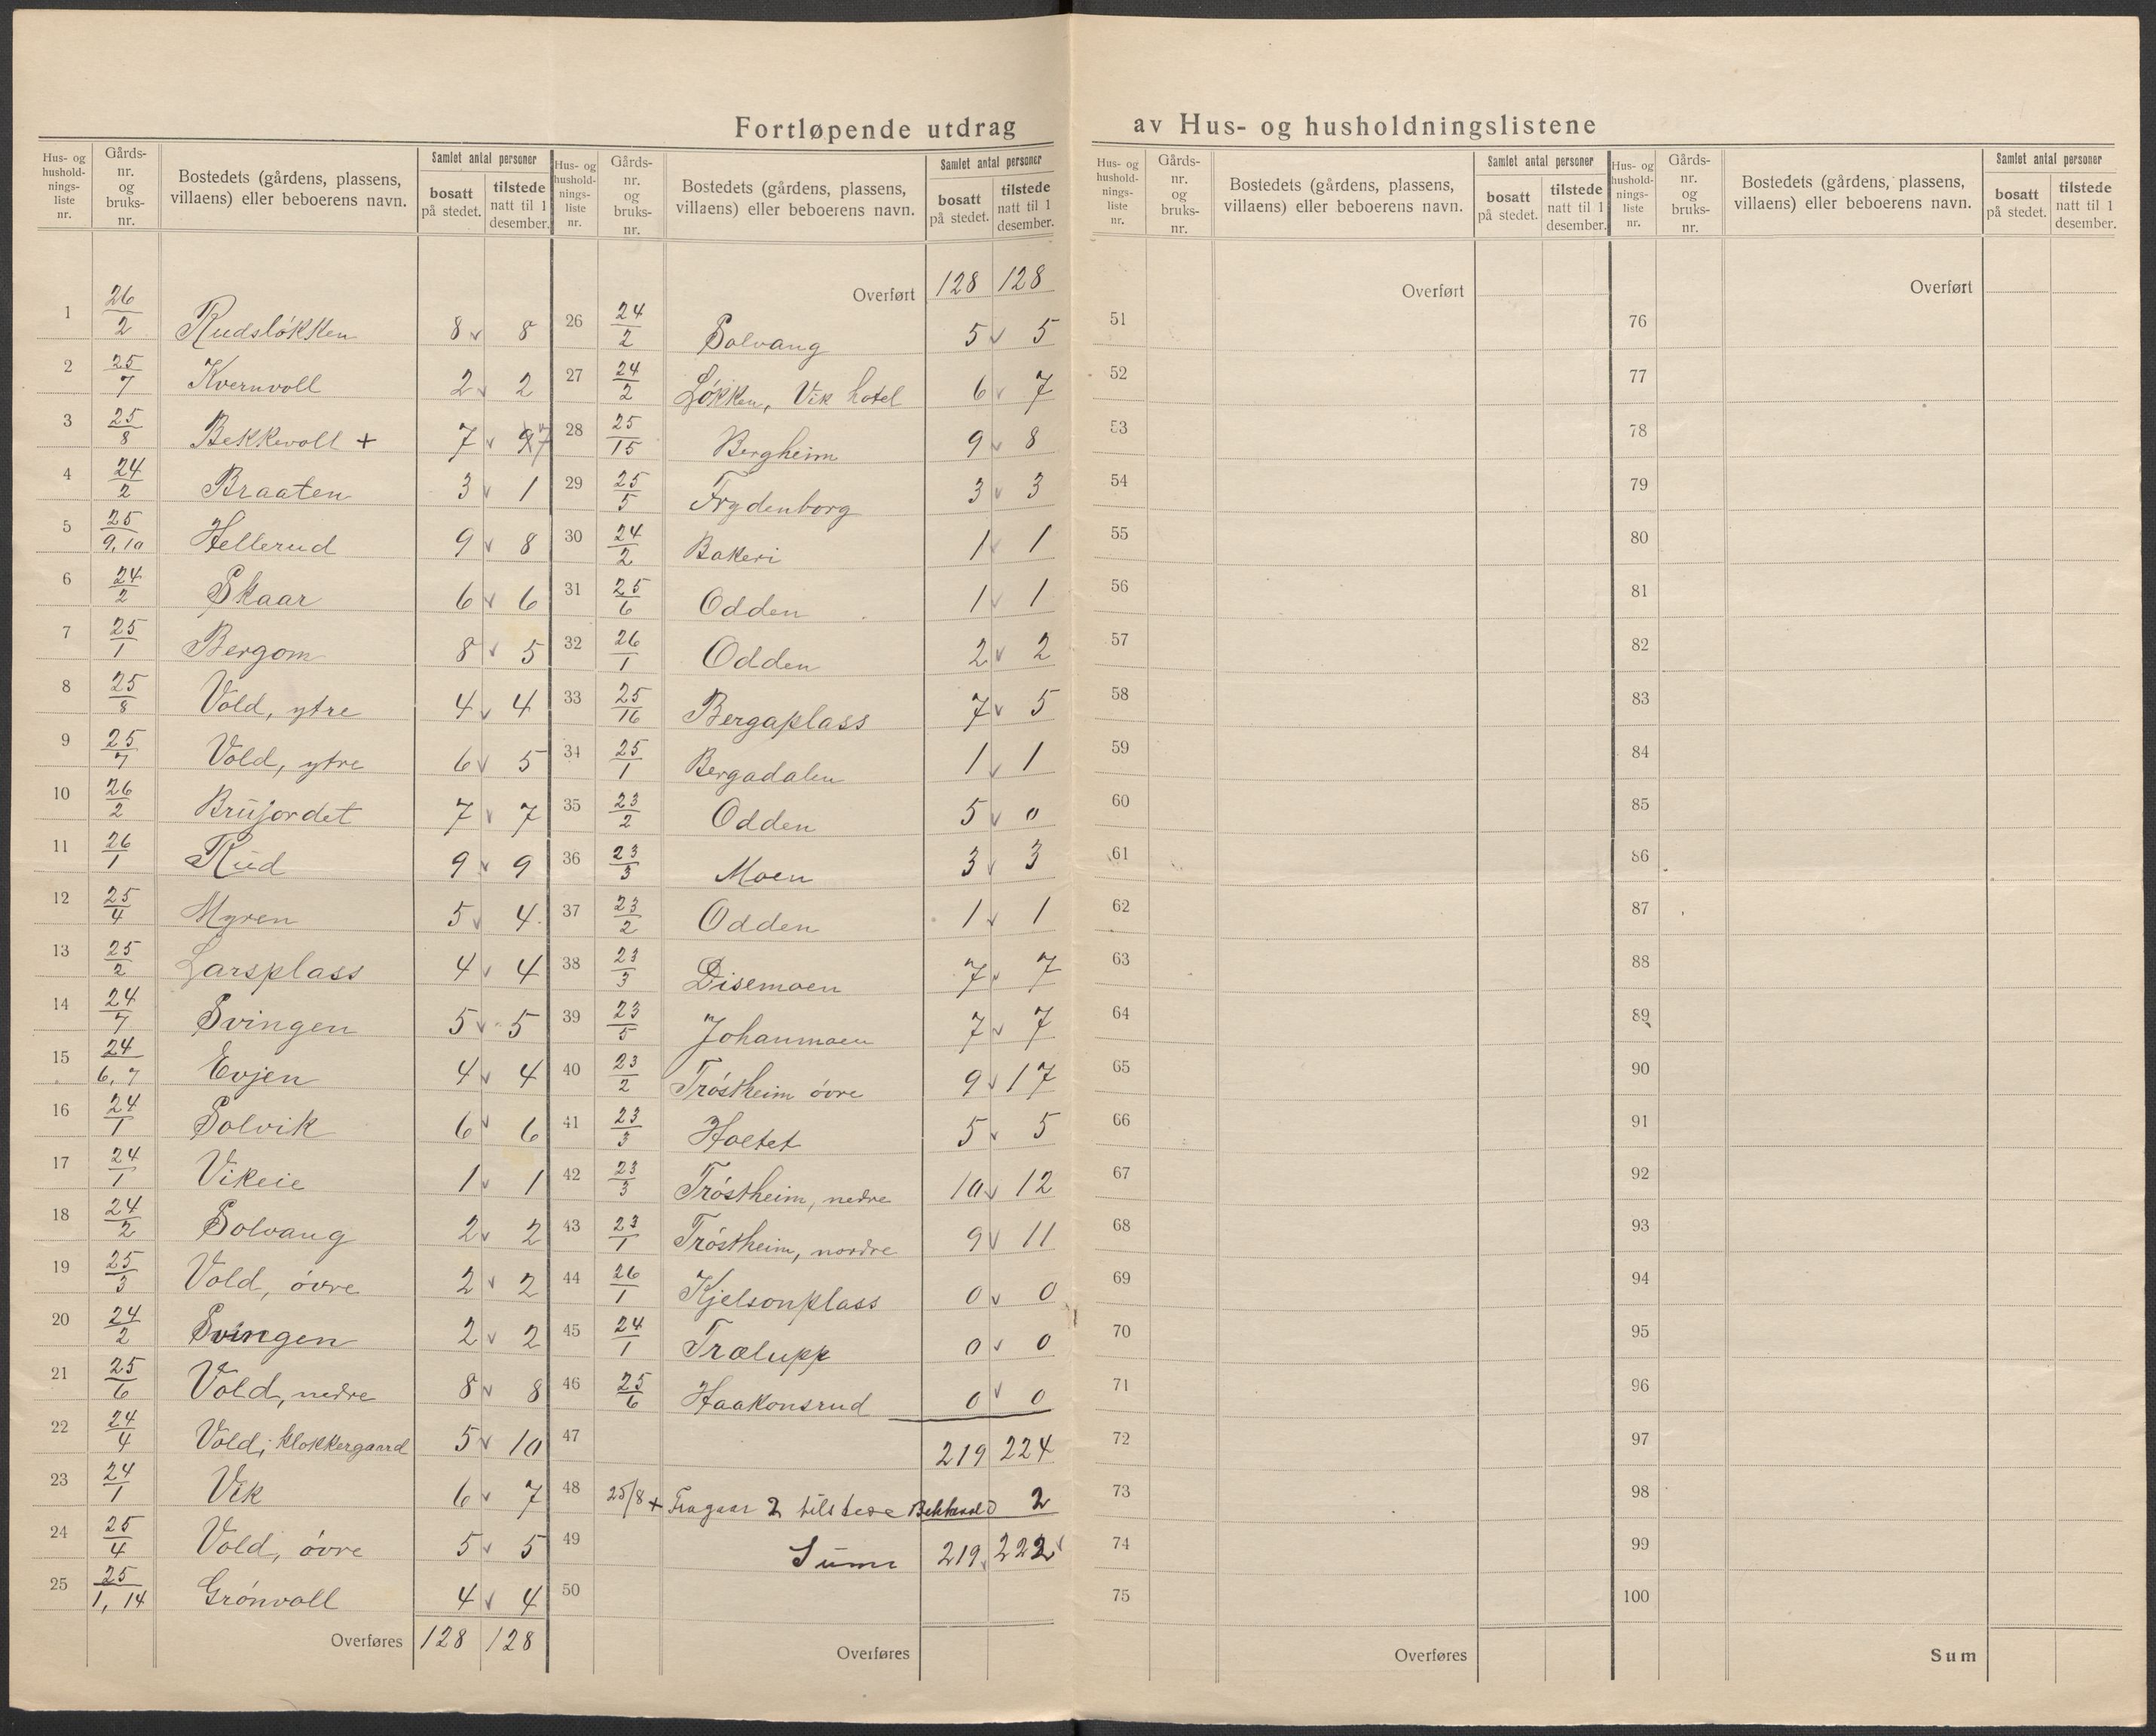 Fortløpende utdrag av Hus- og husholdningslistene
Hus- og husholdnings- liste nr. | Gårds- nr. og bruks- nr. | Bostedets (gårdens, plassens, villaens) eller beboerens navn. | Samlet antal personer | bosatt på stedet. | tilstede natt til 1 desember.
1 26/2 Rudsløkken 8 v 8
2 25/7 Kvernvoll 2 v 2
3 25/8 Bekkevoll + 7 v 9 7
4 24/2 Braaten 3 v 1
5 25/9,10 Hellerud 9 v 8
6 24/2 Skaar 6 v 6
7 25/1 Bergom 8 v 5
8 25/8 Vold, ytre 4 v 4
9 25/7 Vold, ytre 6 v 5
10 26/2 Brujordet 7 v 7
11 26/1 Rud 9 v 9
12 25/4 Myren 5 v 4
13 25/2 Larsplass 4 v 4
14 24/7 Svingen 5 v 5
15 24/6,7 Evjen 4 v 4
16 24/1 Solvik 6 v 6
17 24/1 Vikeie 1 v 1
18 24/2 Solvang 2 v 2
19 25/3 Vold, övre 2 v 2
20 24/2 Svingen 2 v 2
21 25/6 Vold, nedre 8 v 8
22 24/4 Vold, klokkergaard 5 v 10
23 24/1 Vik 6 v 7
24 25/4 Vold, övre 5 v 5
25 25/1,14 Grönvoll 4 v 4
Overføres 128 128
Hus- og husholdnings- liste nr. | Gårds- nr. og bruks- nr. | Bostedets (gårdens, plassens, villaens) eller beboerens navn. | Samlet antal personer | bosatt på stedet. | tilstede natt til 1 desember.
Overført 128 128
26 24/2 Solvang 5 v 5
27 24/2 Løkken, Vik hotel 6 v 7
28 25/15 Bergheim 9 v 8
29 25/5 Frydenborg 3 v 3
30 24/2 Bakeri 1 v 1
31 25/6 Odden 1 v 1
32 26/1 Odden 2 v 2
33 25/16 Bergaplass 7 v 5
34 25/1 Bergadalen 1 v 1
35 23/2 Odden 5 v 0
36 23/3 Moen 3 v 3
37 23/2 Odden 1 v 1
38 23/3 Disemoen 7 v 7
39 23/5 Johanmoen 7 v 7
40 23/2 Tröstheim övre 9 v 17
41 23/3 Holtet 5 v 5
42 23/3 Tröstheim, nedre 10 v 12
43 23/1 Tröstheim, nordre 9 v 11
44 26/1 Kjelsonplass 0 v 0
45 24/1 Trælupp 0 v 0
46 25/6 Haakonsrud 0 v 0
47 219 224
48 25/8 + Fragaar 2 tilstede Bekkevold 2
49 Sum 219 v 222 v
50
Overføres
Hus- og husholdnings- liste nr. | Gårds- nr. og bruks- nr. | Bostedets (gårdens, plassens, villaens) eller beboerens navn. | Samlet antal personer | bosatt på stedet. | tilstede natt til 1 desember.
Overført
51
52
53
54
55
56
57
58
59
60
61
62
63
64
65
66
67
68
69
70
71
72
73
74
75
Overføres
Hus- og husholdnings- liste nr. | Gårds- nr. og bruks- nr. | Bostedets (gårdens, plassens, villaens) eller beboerens navn. | Samlet antal personer | bosatt på stedet. | tilstede natt til 1 desember.
Overført
76
77
78
79
80
81
82
83
84
85
86
87
88
89
90
91
92
93
94
95
96
97
98
99
100
Sum